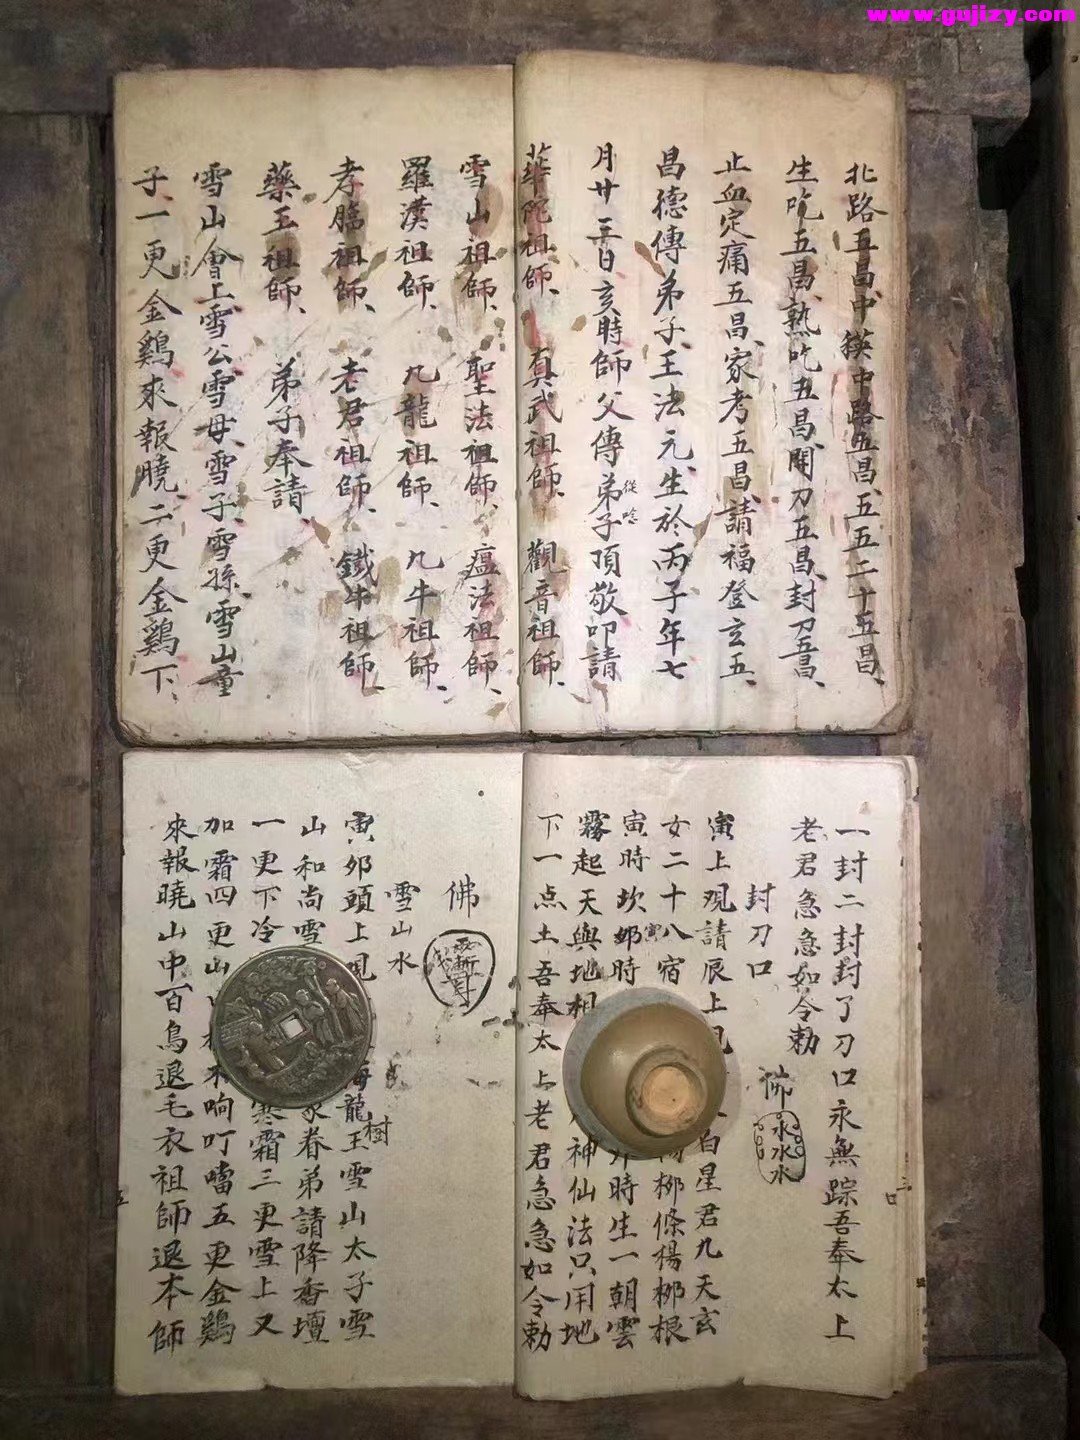 www.gujizy.com
北路五昌、中猴中路五昌、五五二十五昌、
生吃五昌、熟吃五昌、開刀五昌、封刀五昌、
止血定痛五昌、家考五昌、請福登玄五、
昌德傳弟子王法元、生於丙子年七
月廿三日亥時師父傳弟子頂敬叩請
從
華陀祖師、真武祖師、觀音祖師、
雪山祖師、聖法祖師、瘟法祖師、
羅漢祖師、九龍祖師、九牛祖師、
孝臨祖師、老君祖師、鐵牛祖師
藥王祖師、弟子奉請、
雪山會上雪公雪母、雪子雪孫、雪山童
子一更金鷄來報曉、二更金鷄下、
一封二封封了刀口永無踪吾奉太上
老君急急如令勅
水水水
封刀口
寅上观請辰上
白星君九天玄
女二十八宿
柳條楊柳根
寅時坎卯時
寅
時生一朝雲
霧起天與地相
神仙法只用地
下一点土吾奉太上老君急急如令勅
佛
雪山水
寅卯頭上
海龍王雪山太子雪
树
山和尚雪
家眷弟請降香壇
一更下冷
寒霜三更雪上又
加霜四更山
响叮噹五更金鷄
來報曉山中百鳥退毛衣祖師退本師
三
口
五